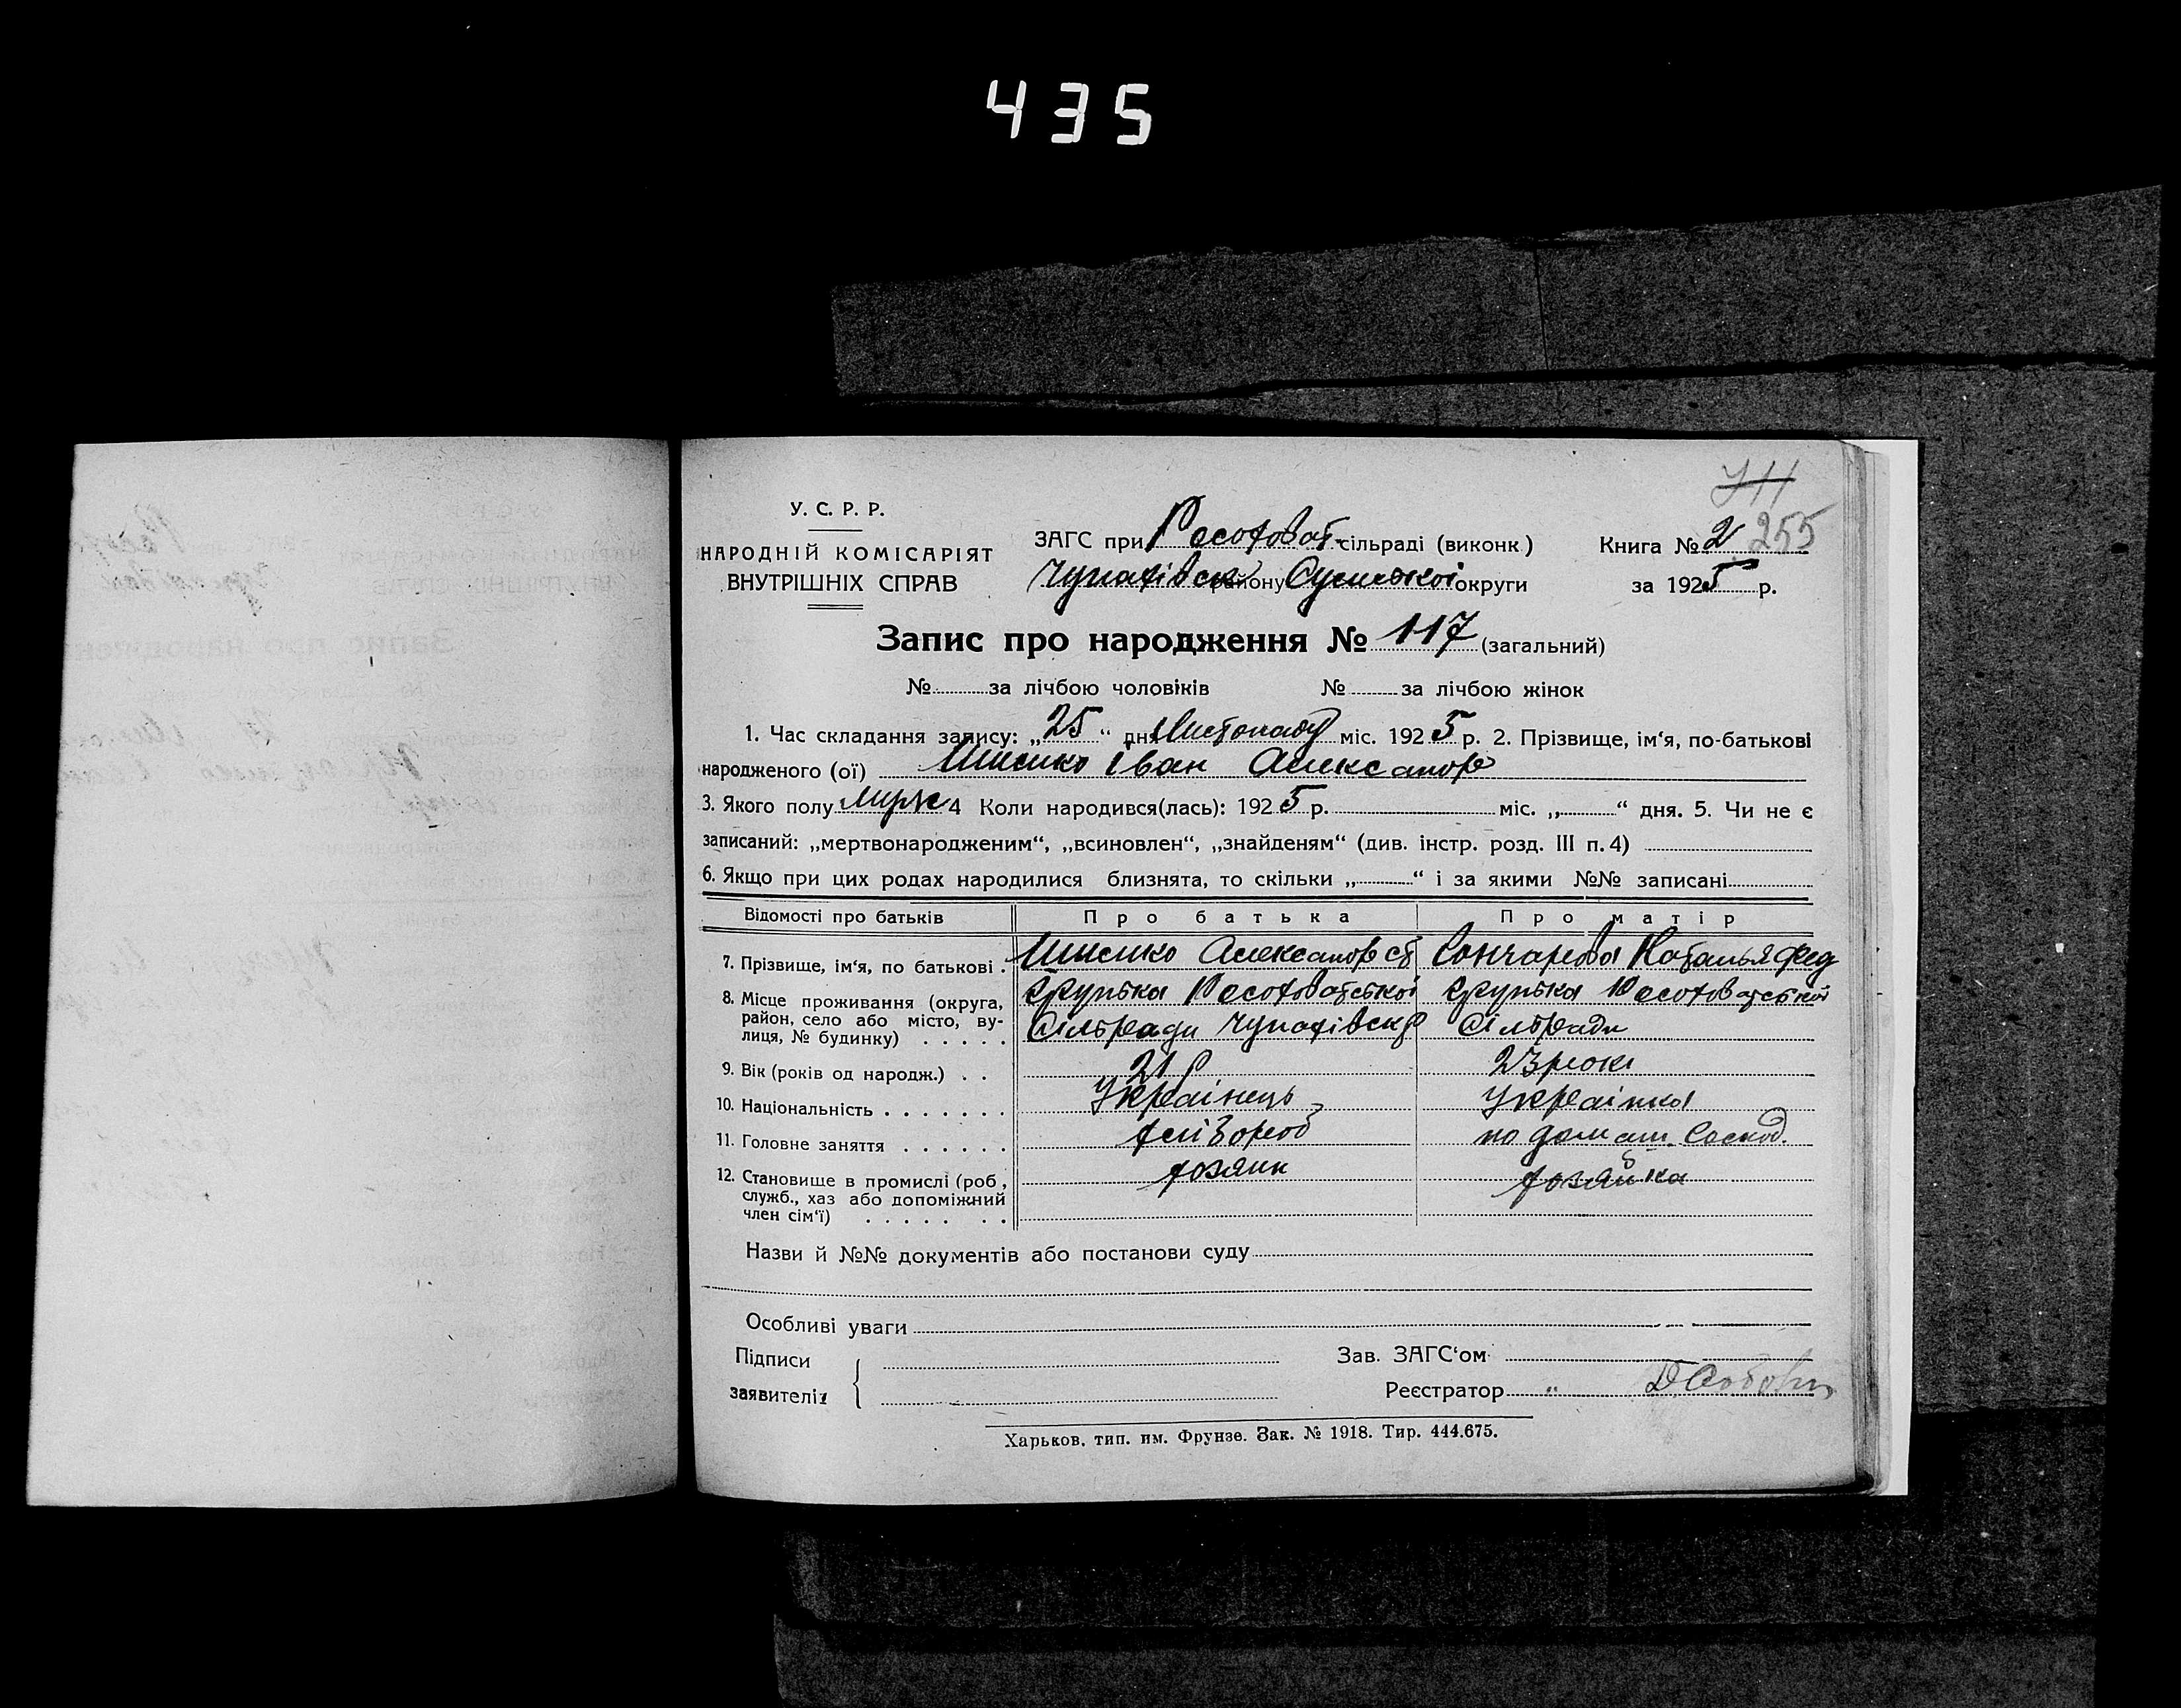 435
711
255
У. С. Р. Р.
НАРОДНІЙ КОМІСАРІЯТ
ВНУТРІШНІХ СПРАВ
ЗАГС при Расоховат. сільраді (виконк.)
Чупахівськ району Сумської округи
Книга № 2
за 1925 р.
Запис про народження № 117 (загальний)
№ за лічбою чоловіків № за лічбою жінок
1. Час складання запису: „25“ дня Листопаду міс. 1925 р. 2. Прізвище, ім‘я, по-батькові
народженого (ої) Іван Александр
3. Якого полу 4 Коли народився(лась): 1925 р. міс. „ “ дня. 5. Чи не є
записаний: „мертвонародженим“, „всиновлен“, „знайденям“ (див. інстр. розд. III п. 4)
6. Якщо при цих родах народилися близнята, то скільки „ “ і за якими №№ записані
Відомості про батьків Про батька Про матір
7. Прізвище, ім‘я, по батькові. Александр Гончарова Наталья Фед
8. Місце проживання (округа, район, село або місто, вулиця, № будинку) Расоховатської Расоховатської
Сільради Чупахівськ Сільради
9. Вік (років од народж.) 21 р 23 роки
10. Національність Українець Українка
11. Головне заняття хлібороб по домаш. Господ.
12. Становище в промислі (роб., служб., хаз або допоміжний член сім‘ї) хозяин хозяйка
Назви й №№ документів або постанови суду
Особливі уваги
Підписи
заявителів
Зав. ЗАГС‘ом
Реєстратор „
Харьков, тип. им. Фрунзе. Зак. № 1918. Тир. 444.675.